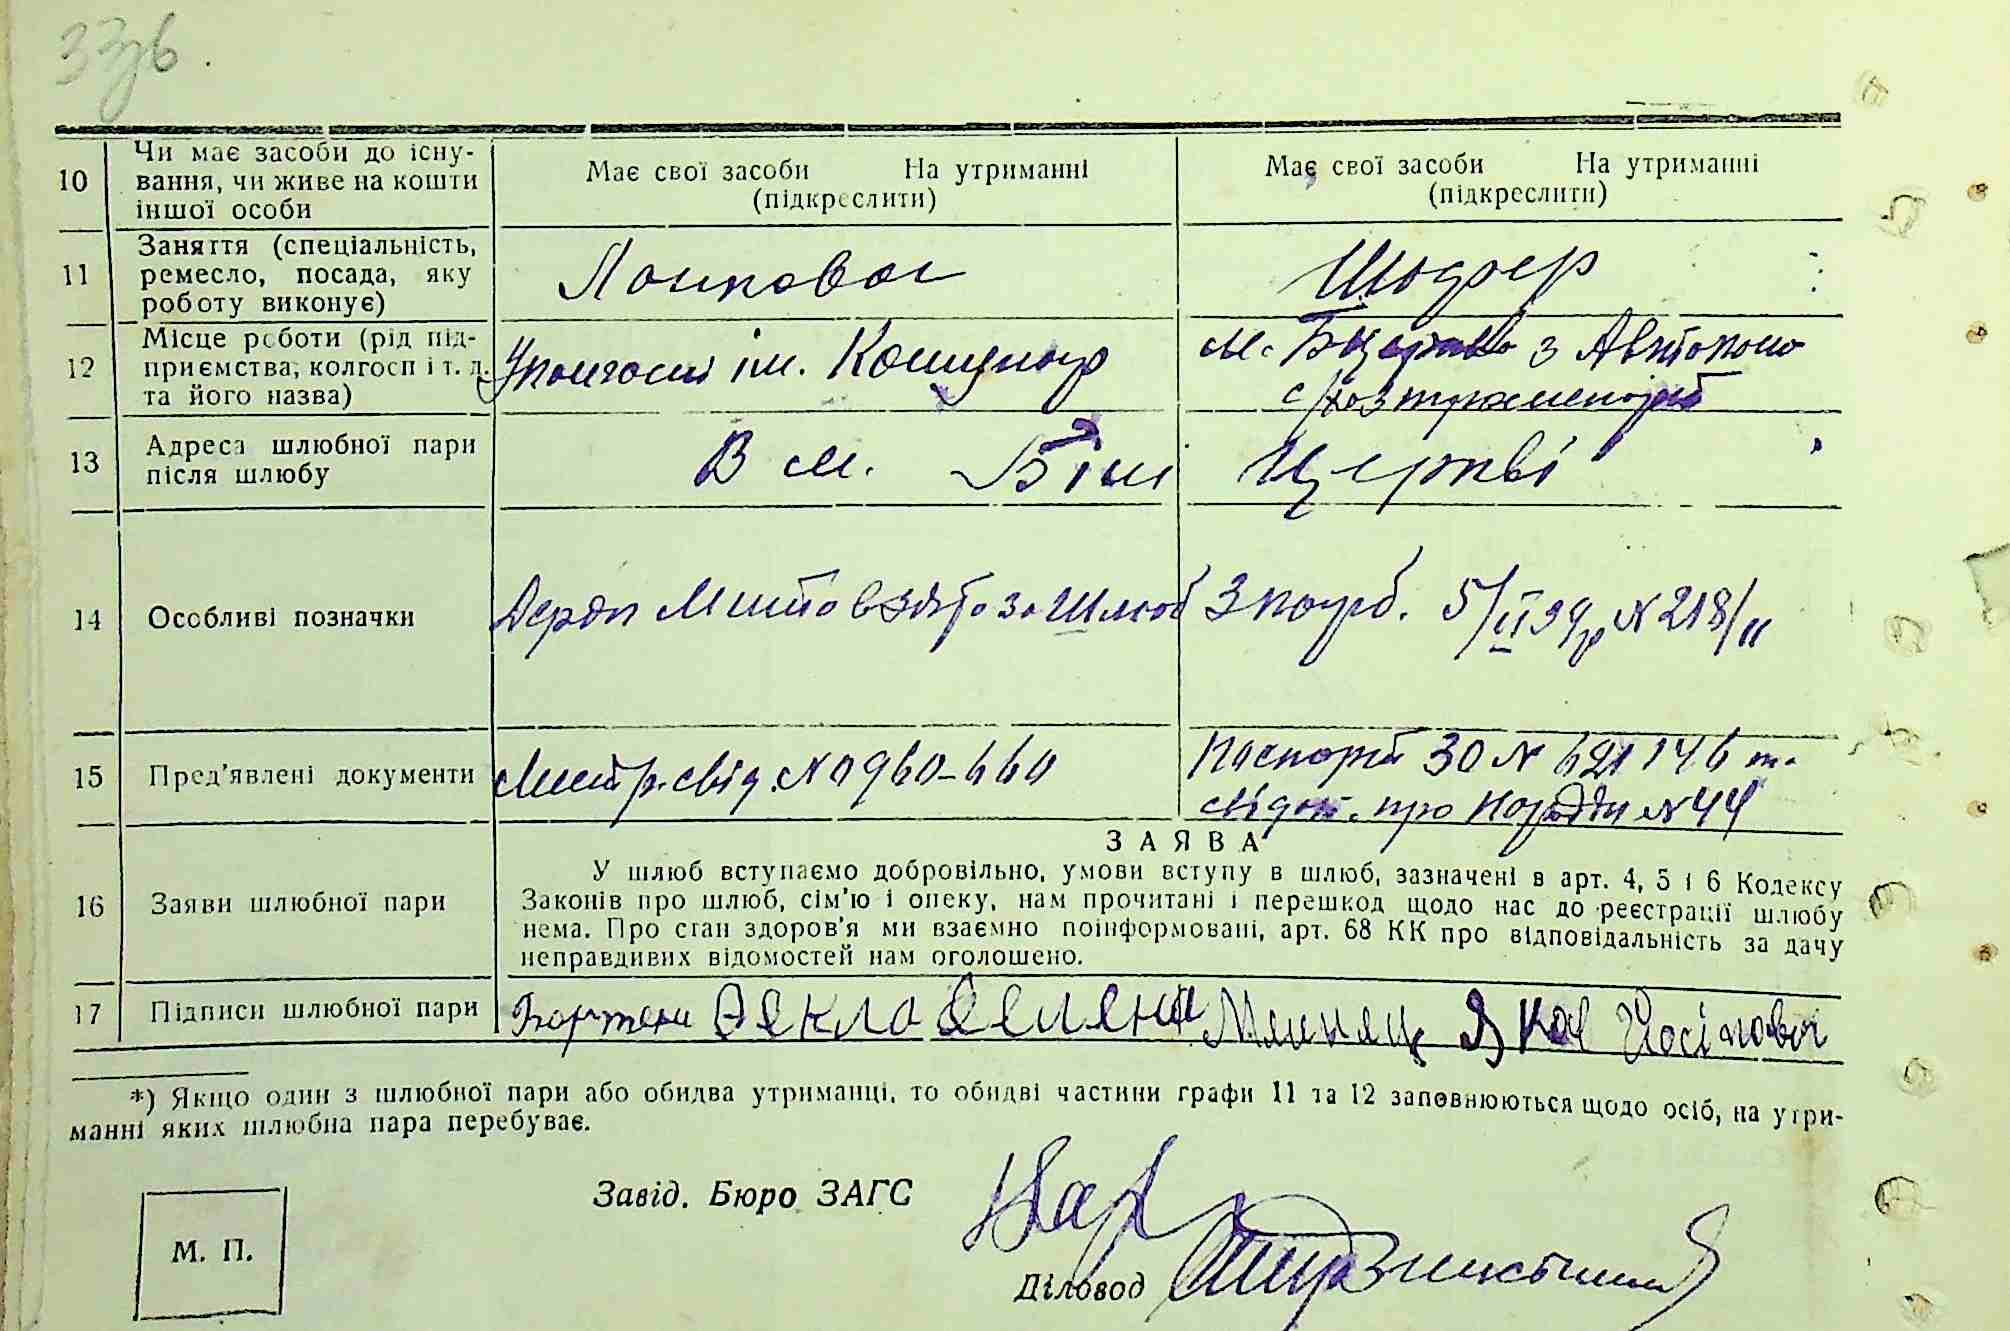 10 Чи має засоби до існу-
вання, чи живе на кошти
іншої особи
Має свої засоби На утриманні
(підкреслити)
Має свої засоби На утриманні
(підкреслити)
11 Заняття (спеціальність,
ремесло, посада, яку
роботу виконує)
Ланкова
Шофер
12 Місце роботи (рід під-
приємства, колгосп і т. д.
та його назва)
ім. Комунар
м. Б Церква з Автоколо
13 Адреса шлюбної пари
після шлюбу
В м. Білі Церкві
14 Особливі позначки
Держ Мито взято за Шлюб З розр. 5/II 39р № 218/11
15 Пред'явлені документи
Метр. свід. №0960-660
Паспорт ЗО № 621146 т.
свідот. про Народж №44
16 Заяви шлюбної пари
ЗАЯВА
У шлюб вступаємо добровільно, умови вступу в шлюб, зазначені в арт. 4, 5 і 6 Кодексу
Законів про шлюб, сім'ю і опеку, нам прочитані і перешкод щодо нас до реєстрації шлюбу
нема. Про стан здоров'я ми взаємно поінформовані, арт. 68 КК про відповідальність за дачу
неправдивих відомостей нам оголошено.
17 Підписи шлюбної пари
Текла Яков Йосіпович
*) Якщо один з шлюбної пари або обидва утриманці, то обидві частини графи 11 та 12 заповнюються щодо осіб, на утри-
манні яких шлюбна пара перебуває.
Завід. Бюро ЗАГС
М. П.
Діловод